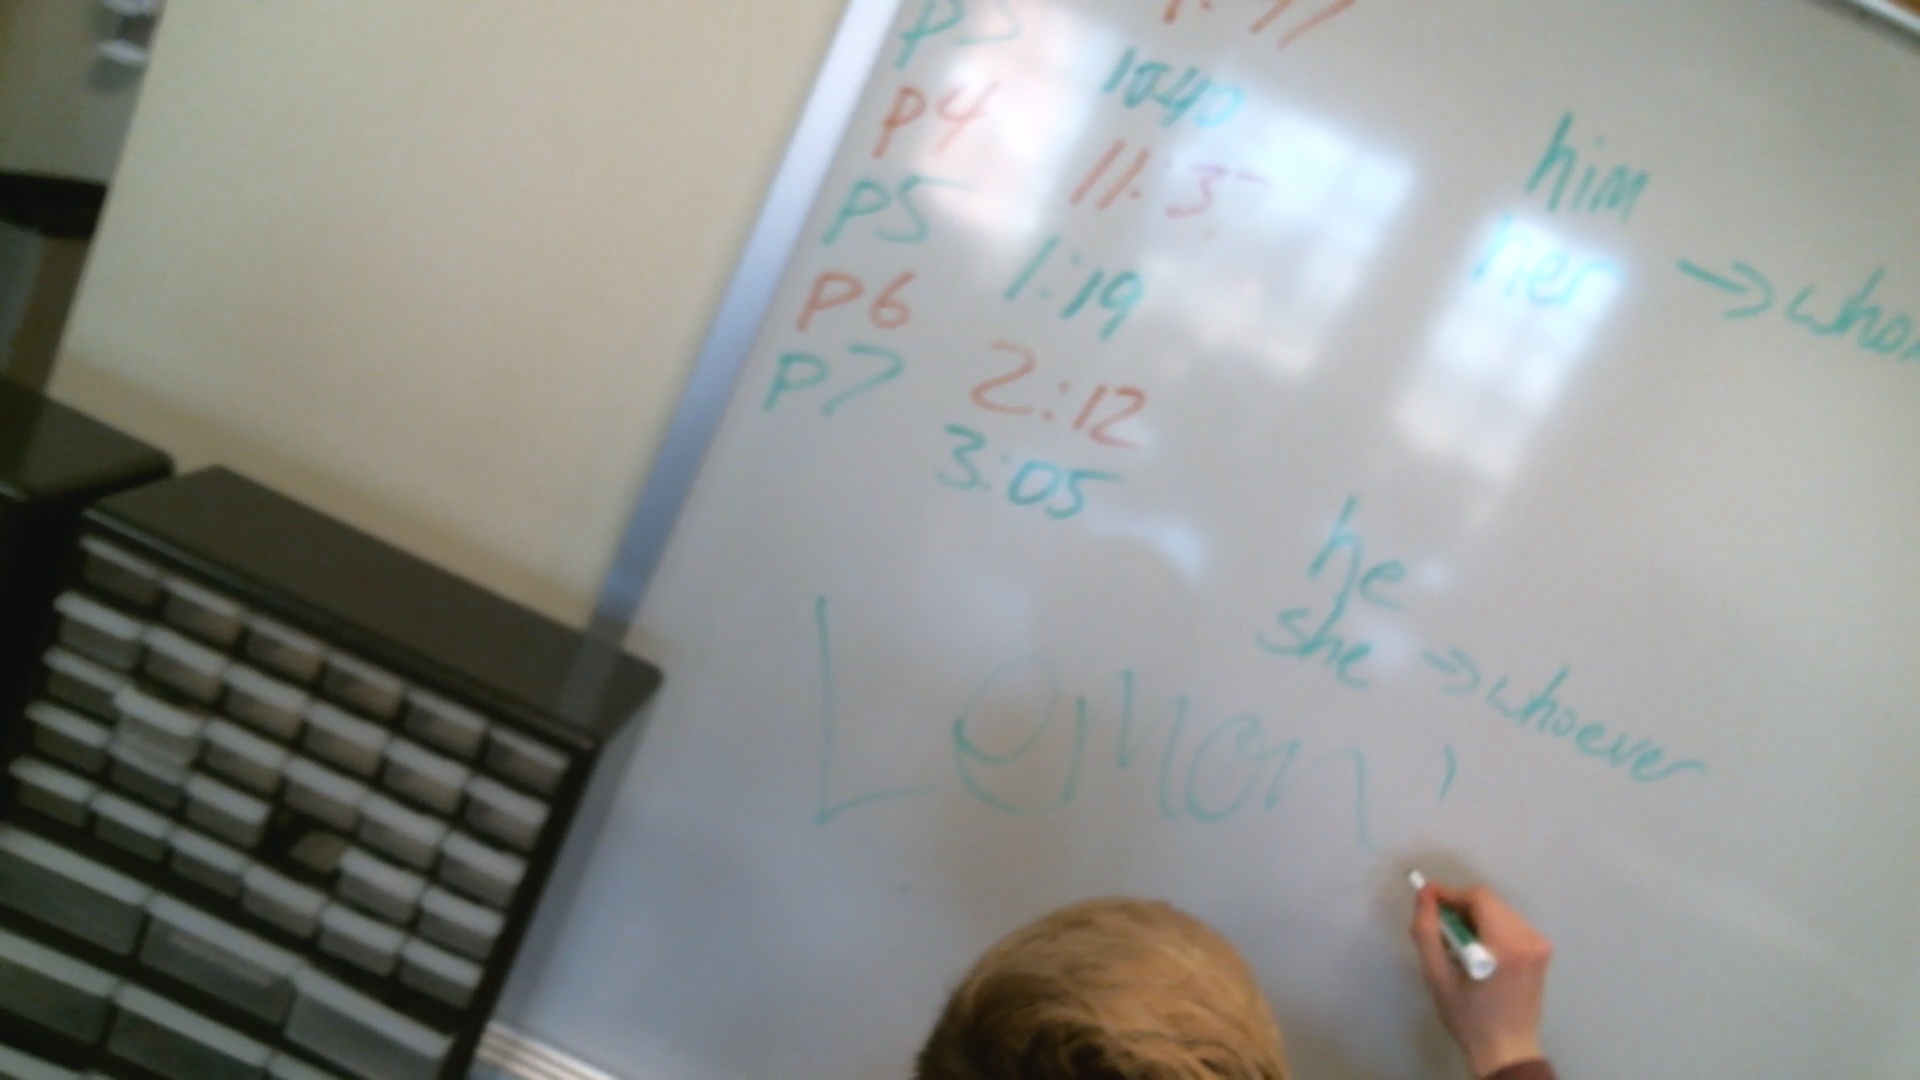 p3
10:40
p4
p5
1:19
p6
2:12
p7
3:05
him
her → whom
he
she → whoever
Lemon